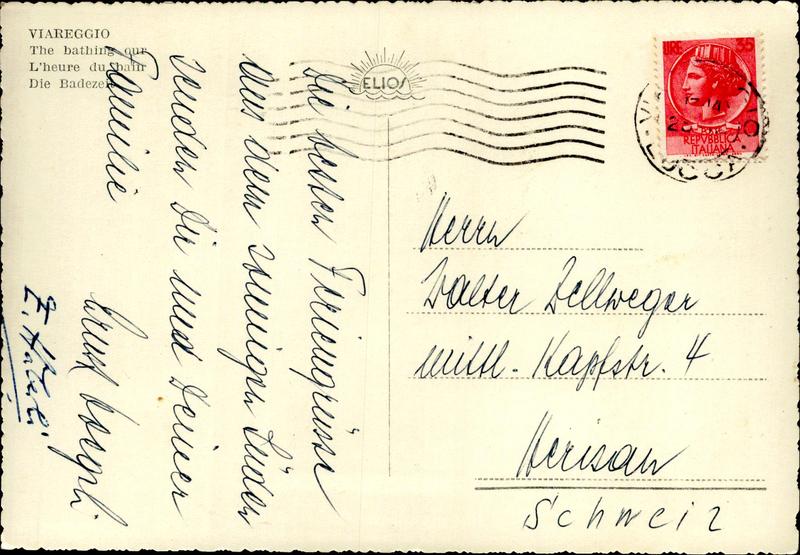 VIAREGGIO
The bathing our
L'heure du bain
Die Badezeit
ELIOS
LIRE 35
REPVBBLICA
ITALIANA
LUCCA
Die besten Feriengrüsse
aus dem sonnigen Süden
senden Dir und Deiner
Familie
Ernst
Herrn
Walter Zellweger
Mittl. Kapfstr. 4
Herisau
Schweiz